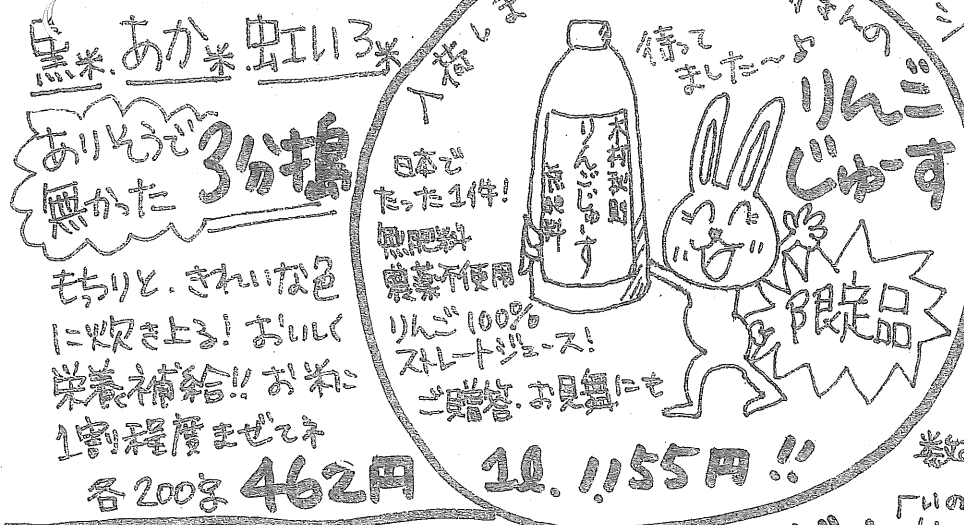 黒米.あか米.虹いろ米
ありそうで
無かった
3分搗
もちりと.きれいな色
に炊き上る!おいしく
栄養補給!!お米に
1割程度まぜてネ
各200g 462円
待って
ました～♪
りんご
じゅーす
日本で
たった1件!
無肥料
農薬不使用
りんご100%
ストレートジュース!
ご贈答.お見舞にも
りんごじゅーす
限定品
1ℓ. 1155円!!